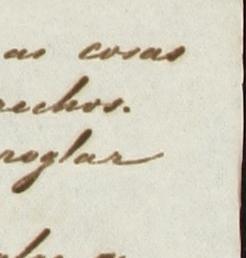 as cosas
rechos.
roglar